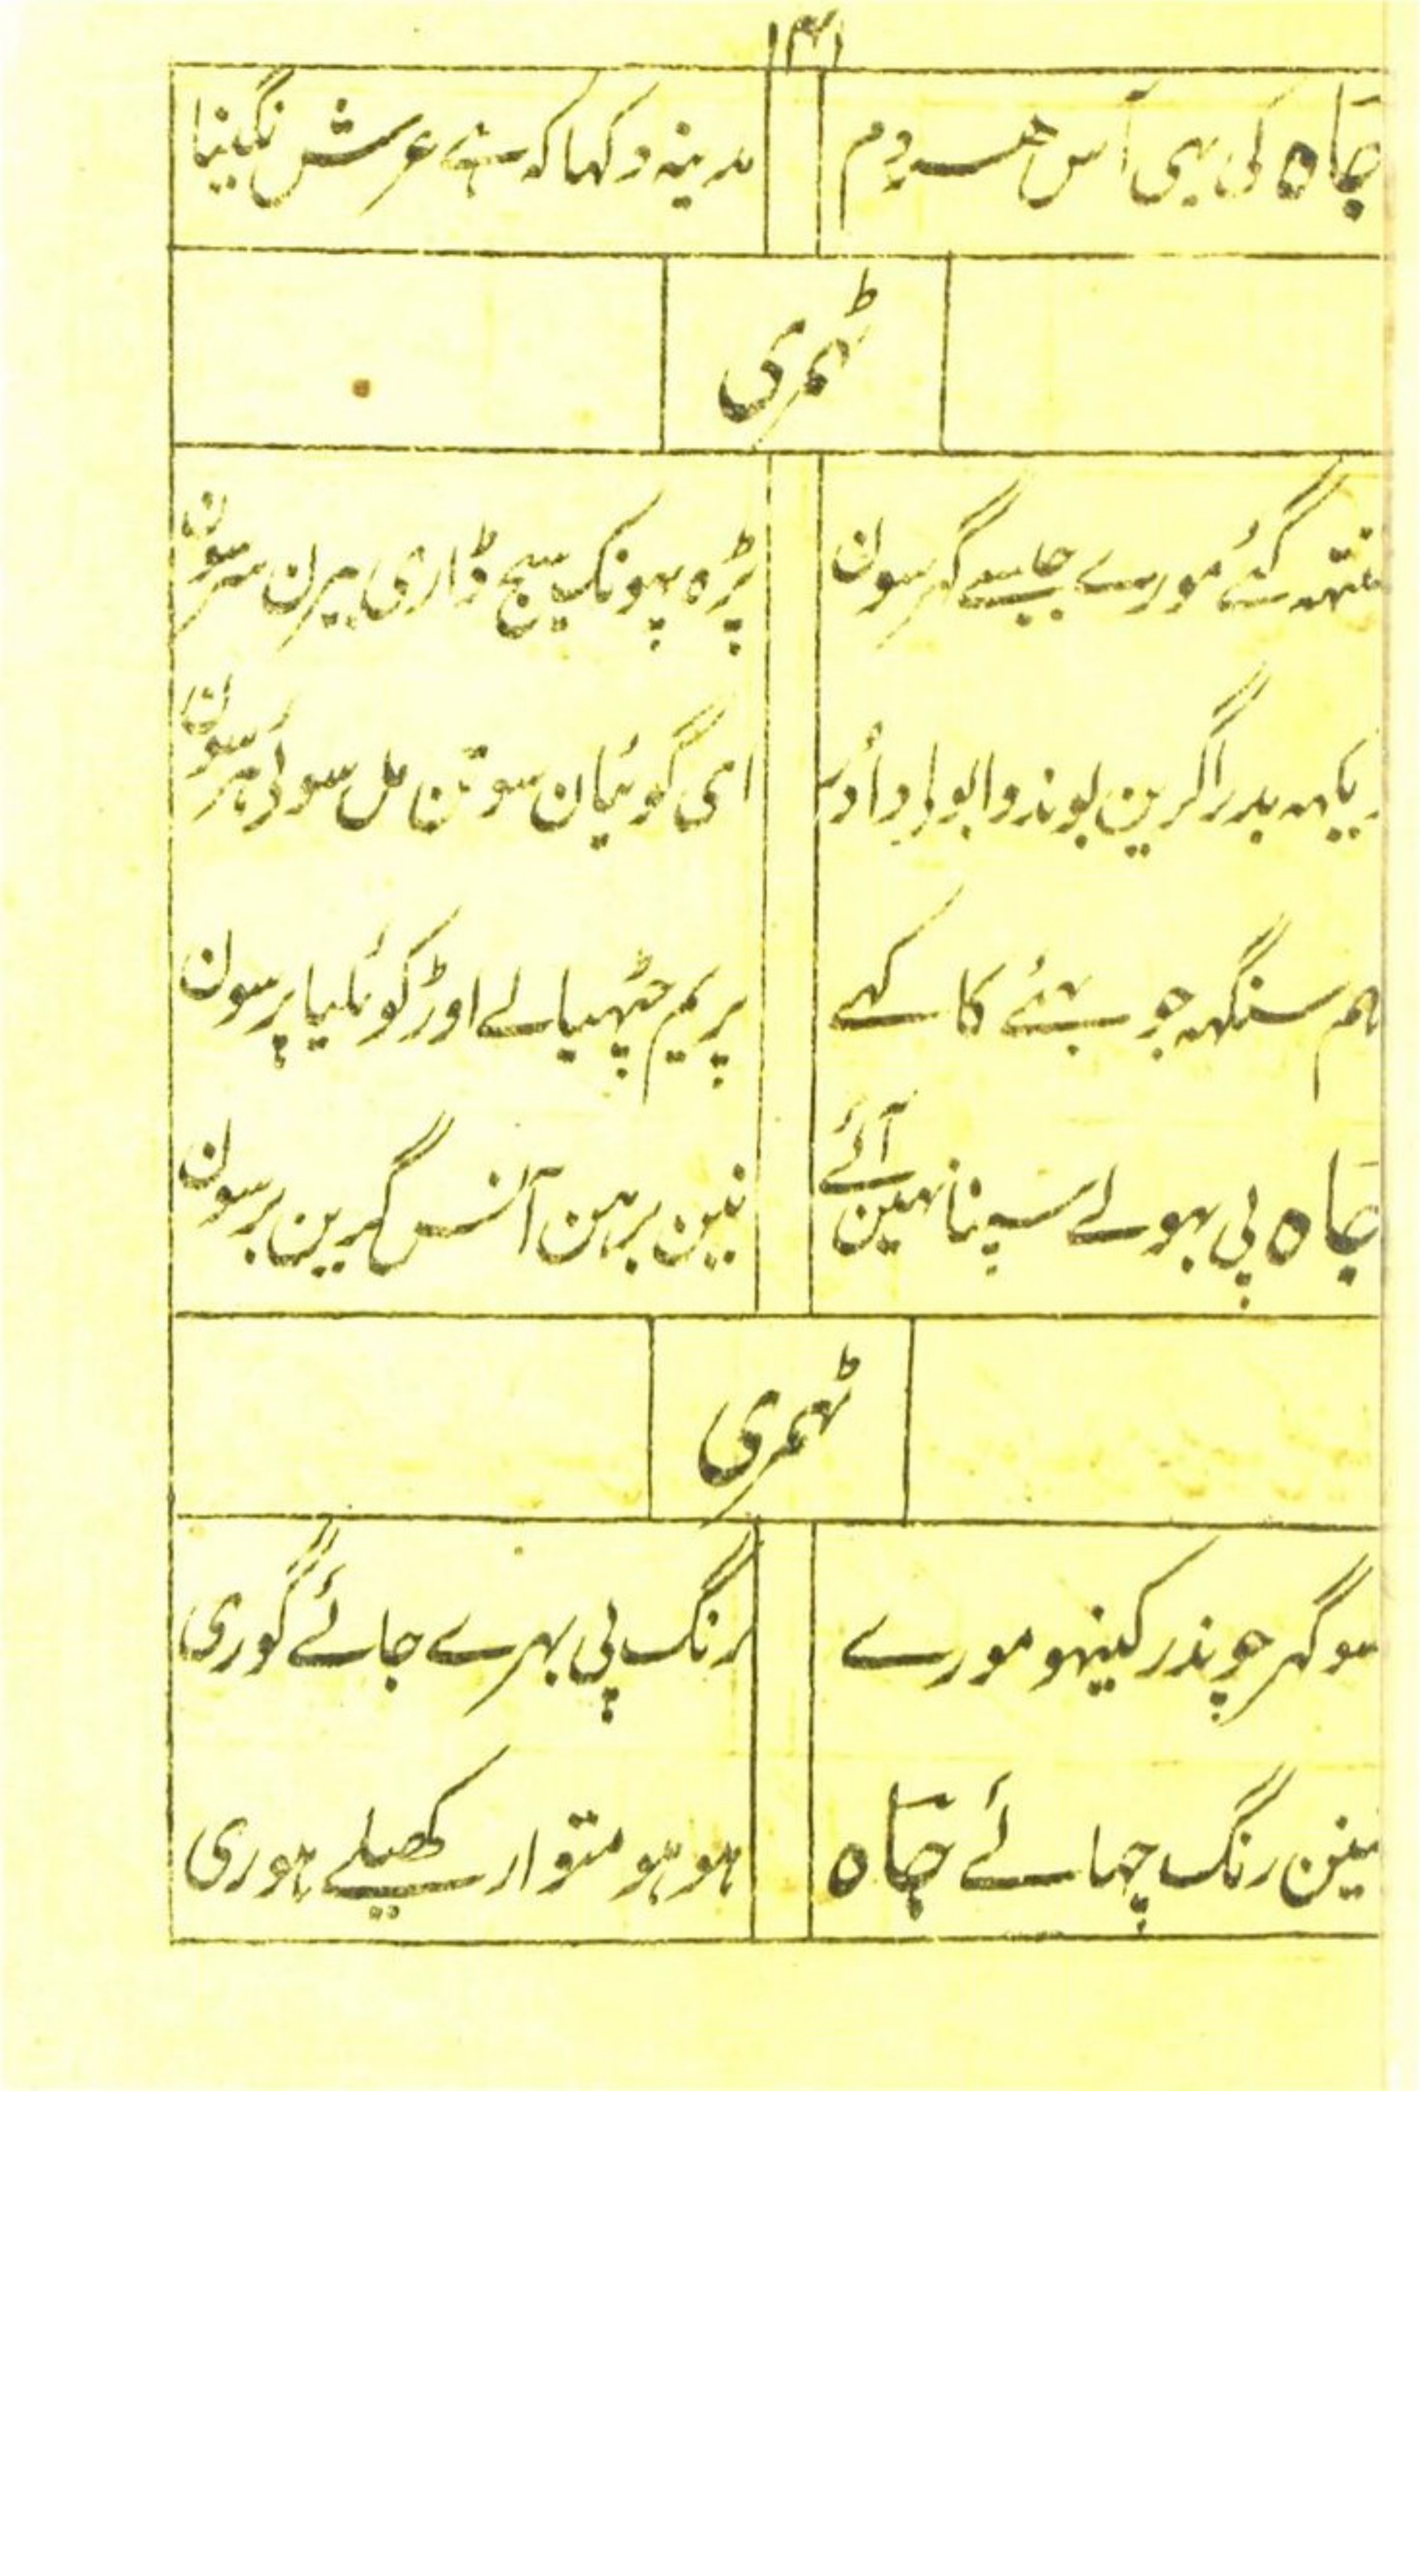 ۱۴۱
جاہ کی یہی آس ھر دم مدینہ دکہا کہ ہے عرش نگینا
ٹہمری
گئے مورے جیسے گہر سون پڑہ پہونک سیج ڈاری بیرن سر سون
بدرا گرین بوندوا بولے ای گوئیان سوتن مل سوئی ہر سون
ہم سنگہ جو بہئے کا کہے پریم چٹہیا لے اوڑ کوئلیا پر سون
جاہ پی بہولے سپنا نہین آئے نین برہن آنس گرین برسون
ٹہمری
سو گہر جو پندر کینہو مورے رنگ پی بہرے جائے گوری
نین رنگ چہائے جاہ ہو ہو متوار کھیلے ہوری